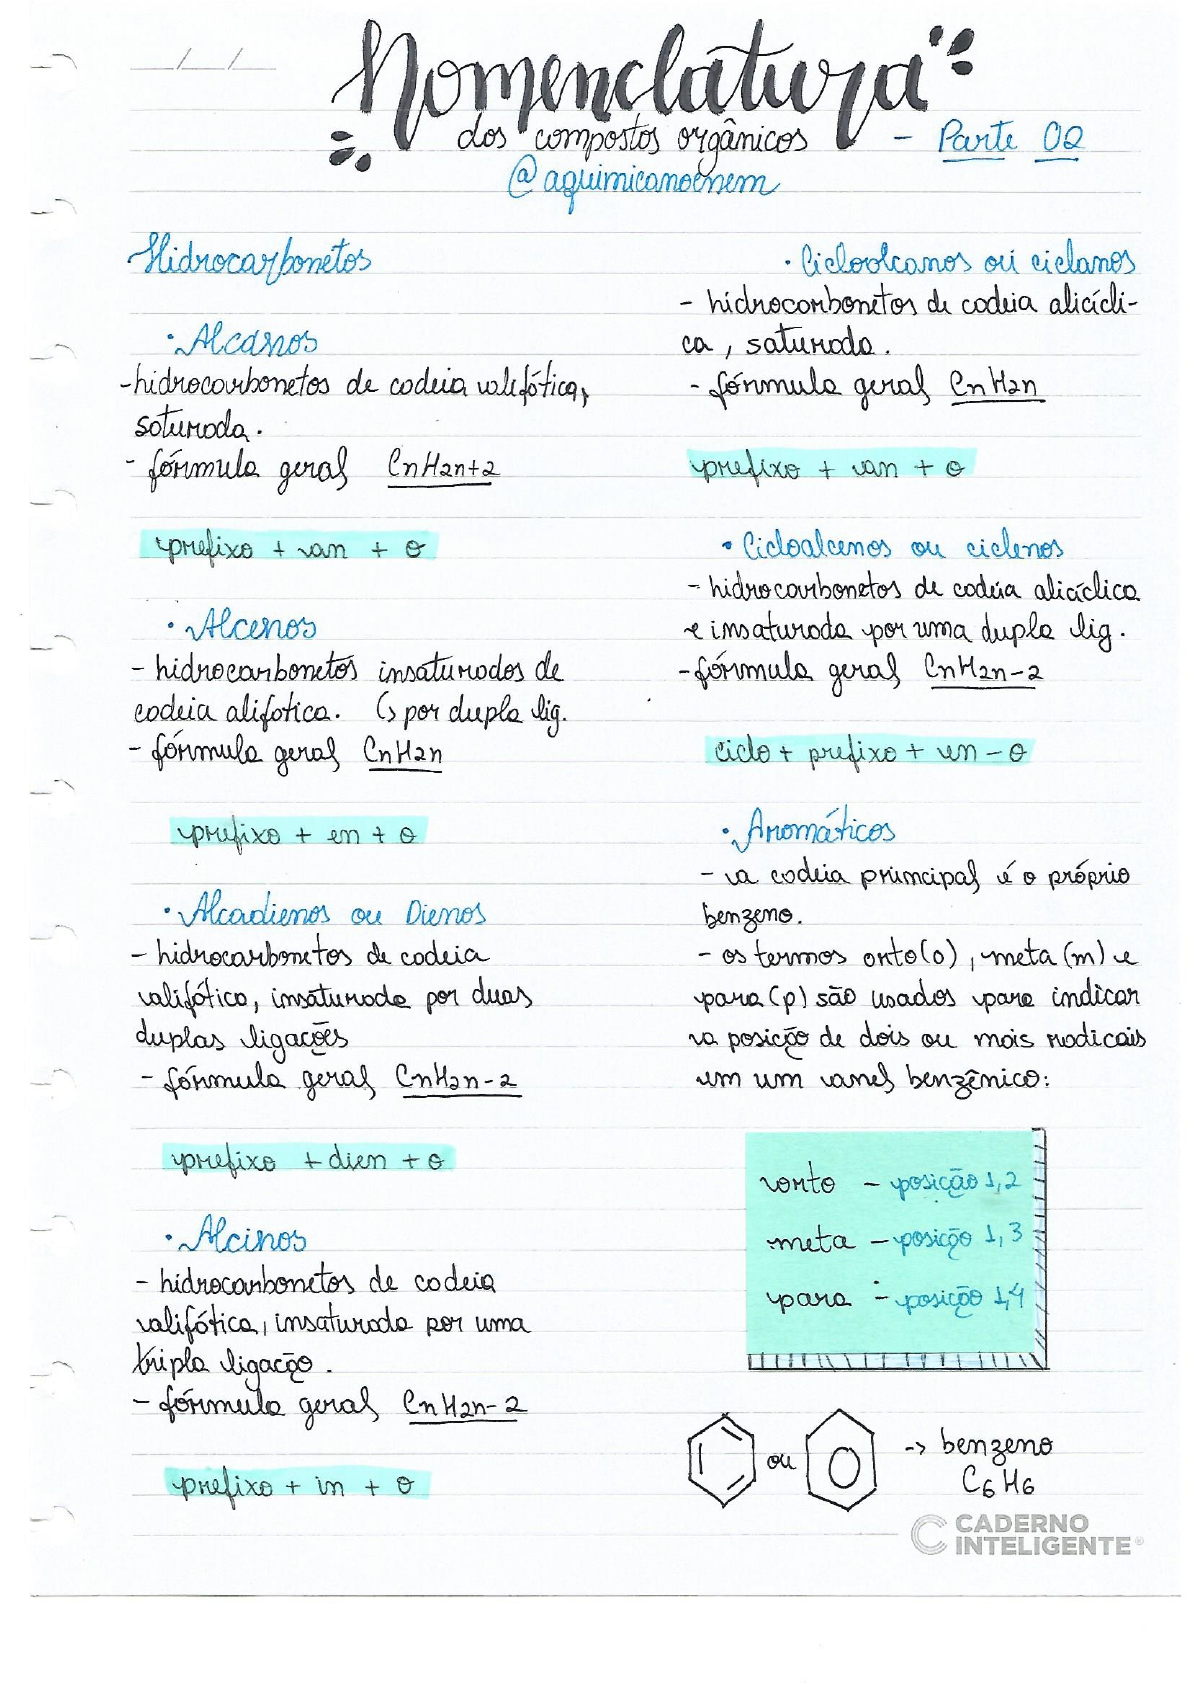 Nomenclatura
dos compostos orgânicos - Parte 02
@aquimicanoenem
Hidrocarbonetos
• Alcanos
- hidrocarbonetos de cadeia alifática,
saturada.
- fórmula geral CnH2n+2
prefixo + an + o
• Alcenos
- hidrocarbonetos insaturados de
cadeia alifatica. ↳ por dupla lig.
- fórmula geral CnH2n
prefixo + en + o
• Alcadienos ou Dienos
- hidrocarbonetos de cadeia
alifática, insaturada por duas
duplas ligações
- fórmula geral CnH2n-2
prefixo + dien + o
• Alcinos
- hidrocarbonetos de cadeia
alifática, insaturada por uma
tripla ligação.
- fórmula geral CnH2n-2
prefixo + in + o
• Cicloalcanos ou ciclanos
- hidrocarbonetos de cadeia alicícli-
ca, saturada.
- fórmula geral CnH2n
prefixo + an + o
• Cicloalcenos ou ciclenos
- hidrocarbonetos de cadeia alicíclica
e insaturada por uma dupla lig.
- fórmula geral CnH2n-2
ciclo + prefixo + en - o
• Aromáticos
- a cadeia principal é o próprio
benzeno.
- os termos orto(o), meta(m) e
para(p) são usados para indicar
a posição de dois ou mais radicais
em um anel benzênico:
orto - posição 1,2
meta - posição 1,3
para - posição 1,4
ou -> benzeno
C6H6
CADERNO
INTELIGENTE®